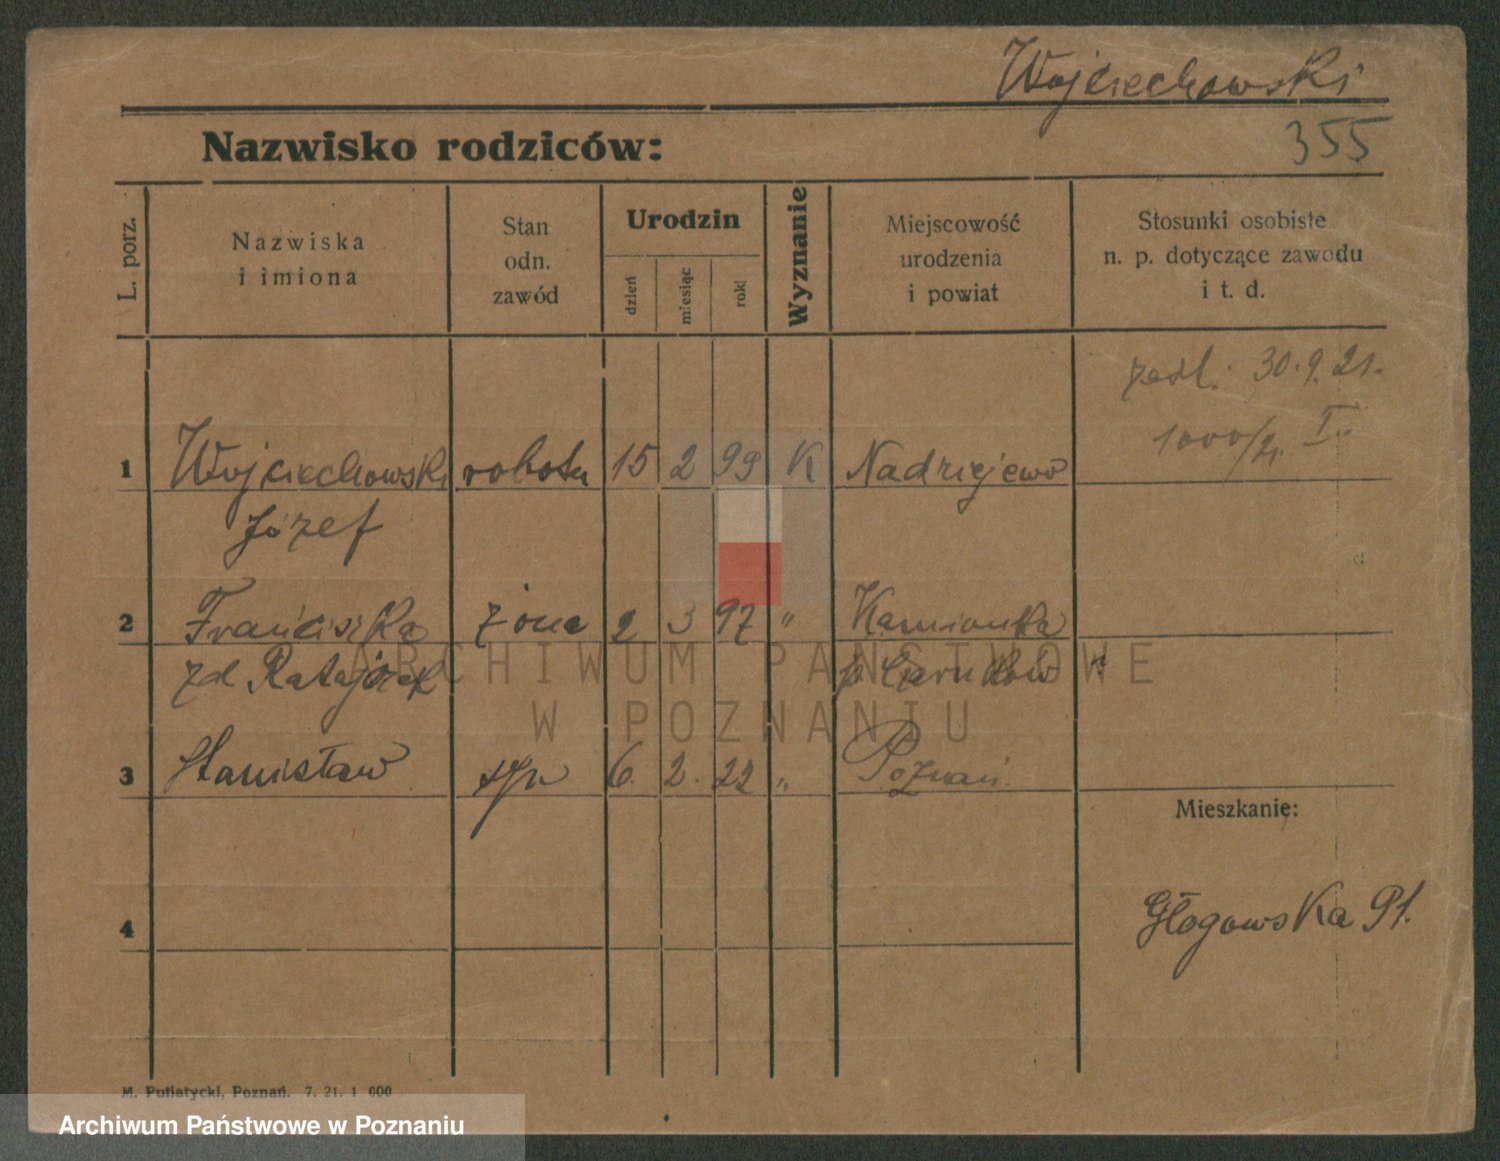 Wojciechowski
355
Nazwisko rodziców:
L. porz.
Nazwiska
i imiona
Stan
odn.
zawód
Urodzin
dzień
miesiąc
rok
Wyznanie
Miejscowość
urodzenia
i powiat
Stosunki osobiste
n. p. dotyczące zawodu
i t. d.
30.9.21.
1 Wojciechowski robotn 15 2 99 K Nadziejewo
Józef
2 Franciszka żona 2 3 97 " Kamionka
zd. Ratajczak
3 Stanisław syn 6. 2. 22 " Poznań
Mieszkanie:
4
Głogowska 91.
M. Putiatycki, Poznań. 7. 21. 1 000
ARCHIWUM PAŃSTWOWE
W POZNANIU
Archiwum Państwowe w Poznaniu